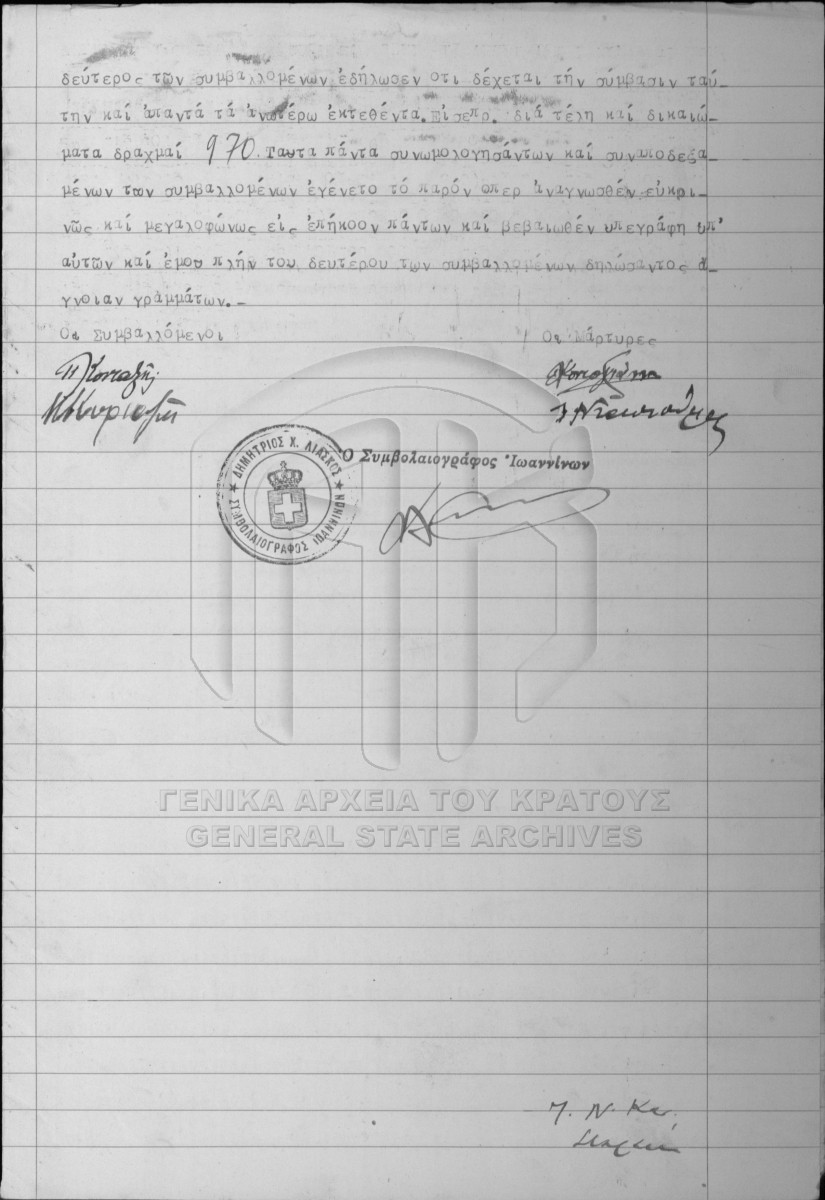 δεύτερος τῶν συμβαλλομένων ἐδήλωσεν οτι δέχεται τήν σύμβασιν ταύ
την καί ἁπαντά τά ἀνωτέρω ἐκτεθέντα. Εἰσεπρ. διά τέλη καί δικαιώ-
ματα δραχμαί 970. Ταυτα πάντα συνωμολογησάντων καί συναποδεξα-
μένων των συμβαλλομένων ἐγένετο τό παρόν οπερ ἀναγνωσθέν εὐκρι-
νῶς καί μεγαλοφώνως εἰς ἐπήκοον πάντων καί βεβαιωθέν υπεγράφη υπ'
αὐτῶν καί ἐμου πλήν του δευτέρου των συμβαλλομένων δηλώσαντος ἀ-
γνοιαν γραμμάτων.-
Οι Συμβαλλόμενοι Οι Μάρτυρες
ΔΗΜΗΤΡΙΟΣ Χ. ΛΙΑΣΚΟΣ
ΣΥΜΒΟΛΑΙΟΓΡΑΦΟΣ ΙΩΑΝΝΙΝΩΝ
Ὁ Συμβολαιογράφος Ἰωαννίνων
ΓΕΝΙΚΑ ΑΡΧΕΙΑ ΤΟΥ ΚΡΑΤΟΥΣ
GENERAL STATE ARCHIVES